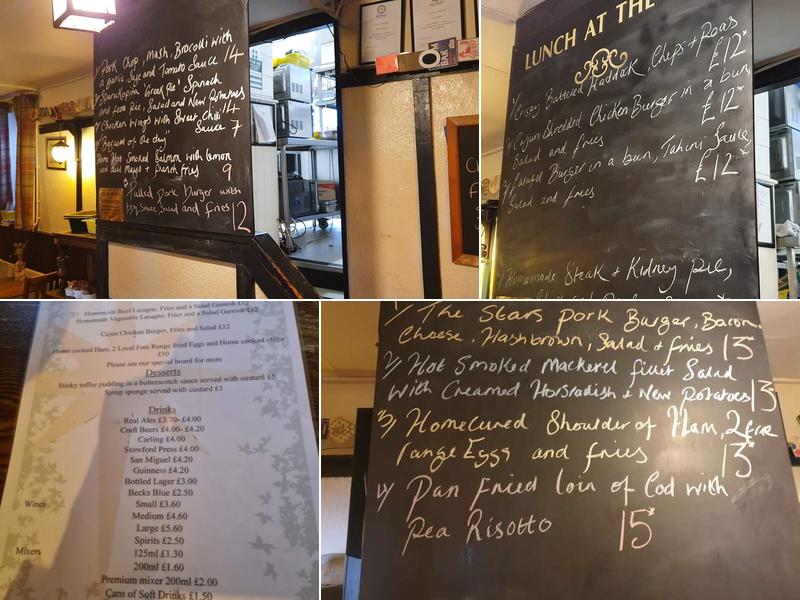 1/ Pork Chop, Mash, Brocolli with
a garlic, and Tomato Sauce 14
Spanakopita "Greek Pie" Spinach
and feta Pie, Salad and New Potatoes
14
Chicken Wings with Sweet Chilli
Sauce 7
of the day"
Home Hot Smoked Salmon with lemon
and dill Mayo + french fries 9
Pulled Pork Burger with
BBQ Sauce Salad and fries 12
LUNCH AT THE
Battered Haddock, Chips + Peas
£12*
Cajun Shredded Chicken Burger in a bun,
Salad and fries £12*
3/ Falafel Burger in a bun, Tahini Sauce
Salad and fries £12*
Homemade Steak + Kidney Pie,
Homemade Beef Lasagne, Fries and a Salad Garnish £12
Homemade Vegetable Lasagne, Fries and a Salad Garnish £12
Cajun Chicken Burger, Fries and Salad £12
Home cooked Ham, 2 Local Free Range fried Eggs and Home cooked chips
£10
Please see our special board for more
Desserts
Sticky toffee pudding in a butterscotch sauce served with custard £5
Syrup sponge served with custard £5
Drinks
Real Ales £3.70- £4.00
Craft Beers £4.00- £4.20
Carling £4.00
Stowford Press £4.00
San Miguel £4.20
Guinness £4.20
Bottled Lager £3.00
Becks Blue £2.50
Wines
Small £3.60
Medium £4.60
Large £5.60
Spirits £2.50
Mixers
125ml £1.30
200ml £1.60
Premium mixer 200ml £2.00
Cans of Soft Drinks £1.50
1/ The Stars Pork Burger, Bacon,
Cheese, Hashbrown, Salad + fries 13*
2/ Hot Smoked Mackerel fillet Salad
with Creamed Horsradish + New Potatoes 13
3/ Homecured Shoulder of Ham, 2 free
range Eggs and fries 13*
4/ Pan Fried loin of Cod with
Pea Risotto 15*